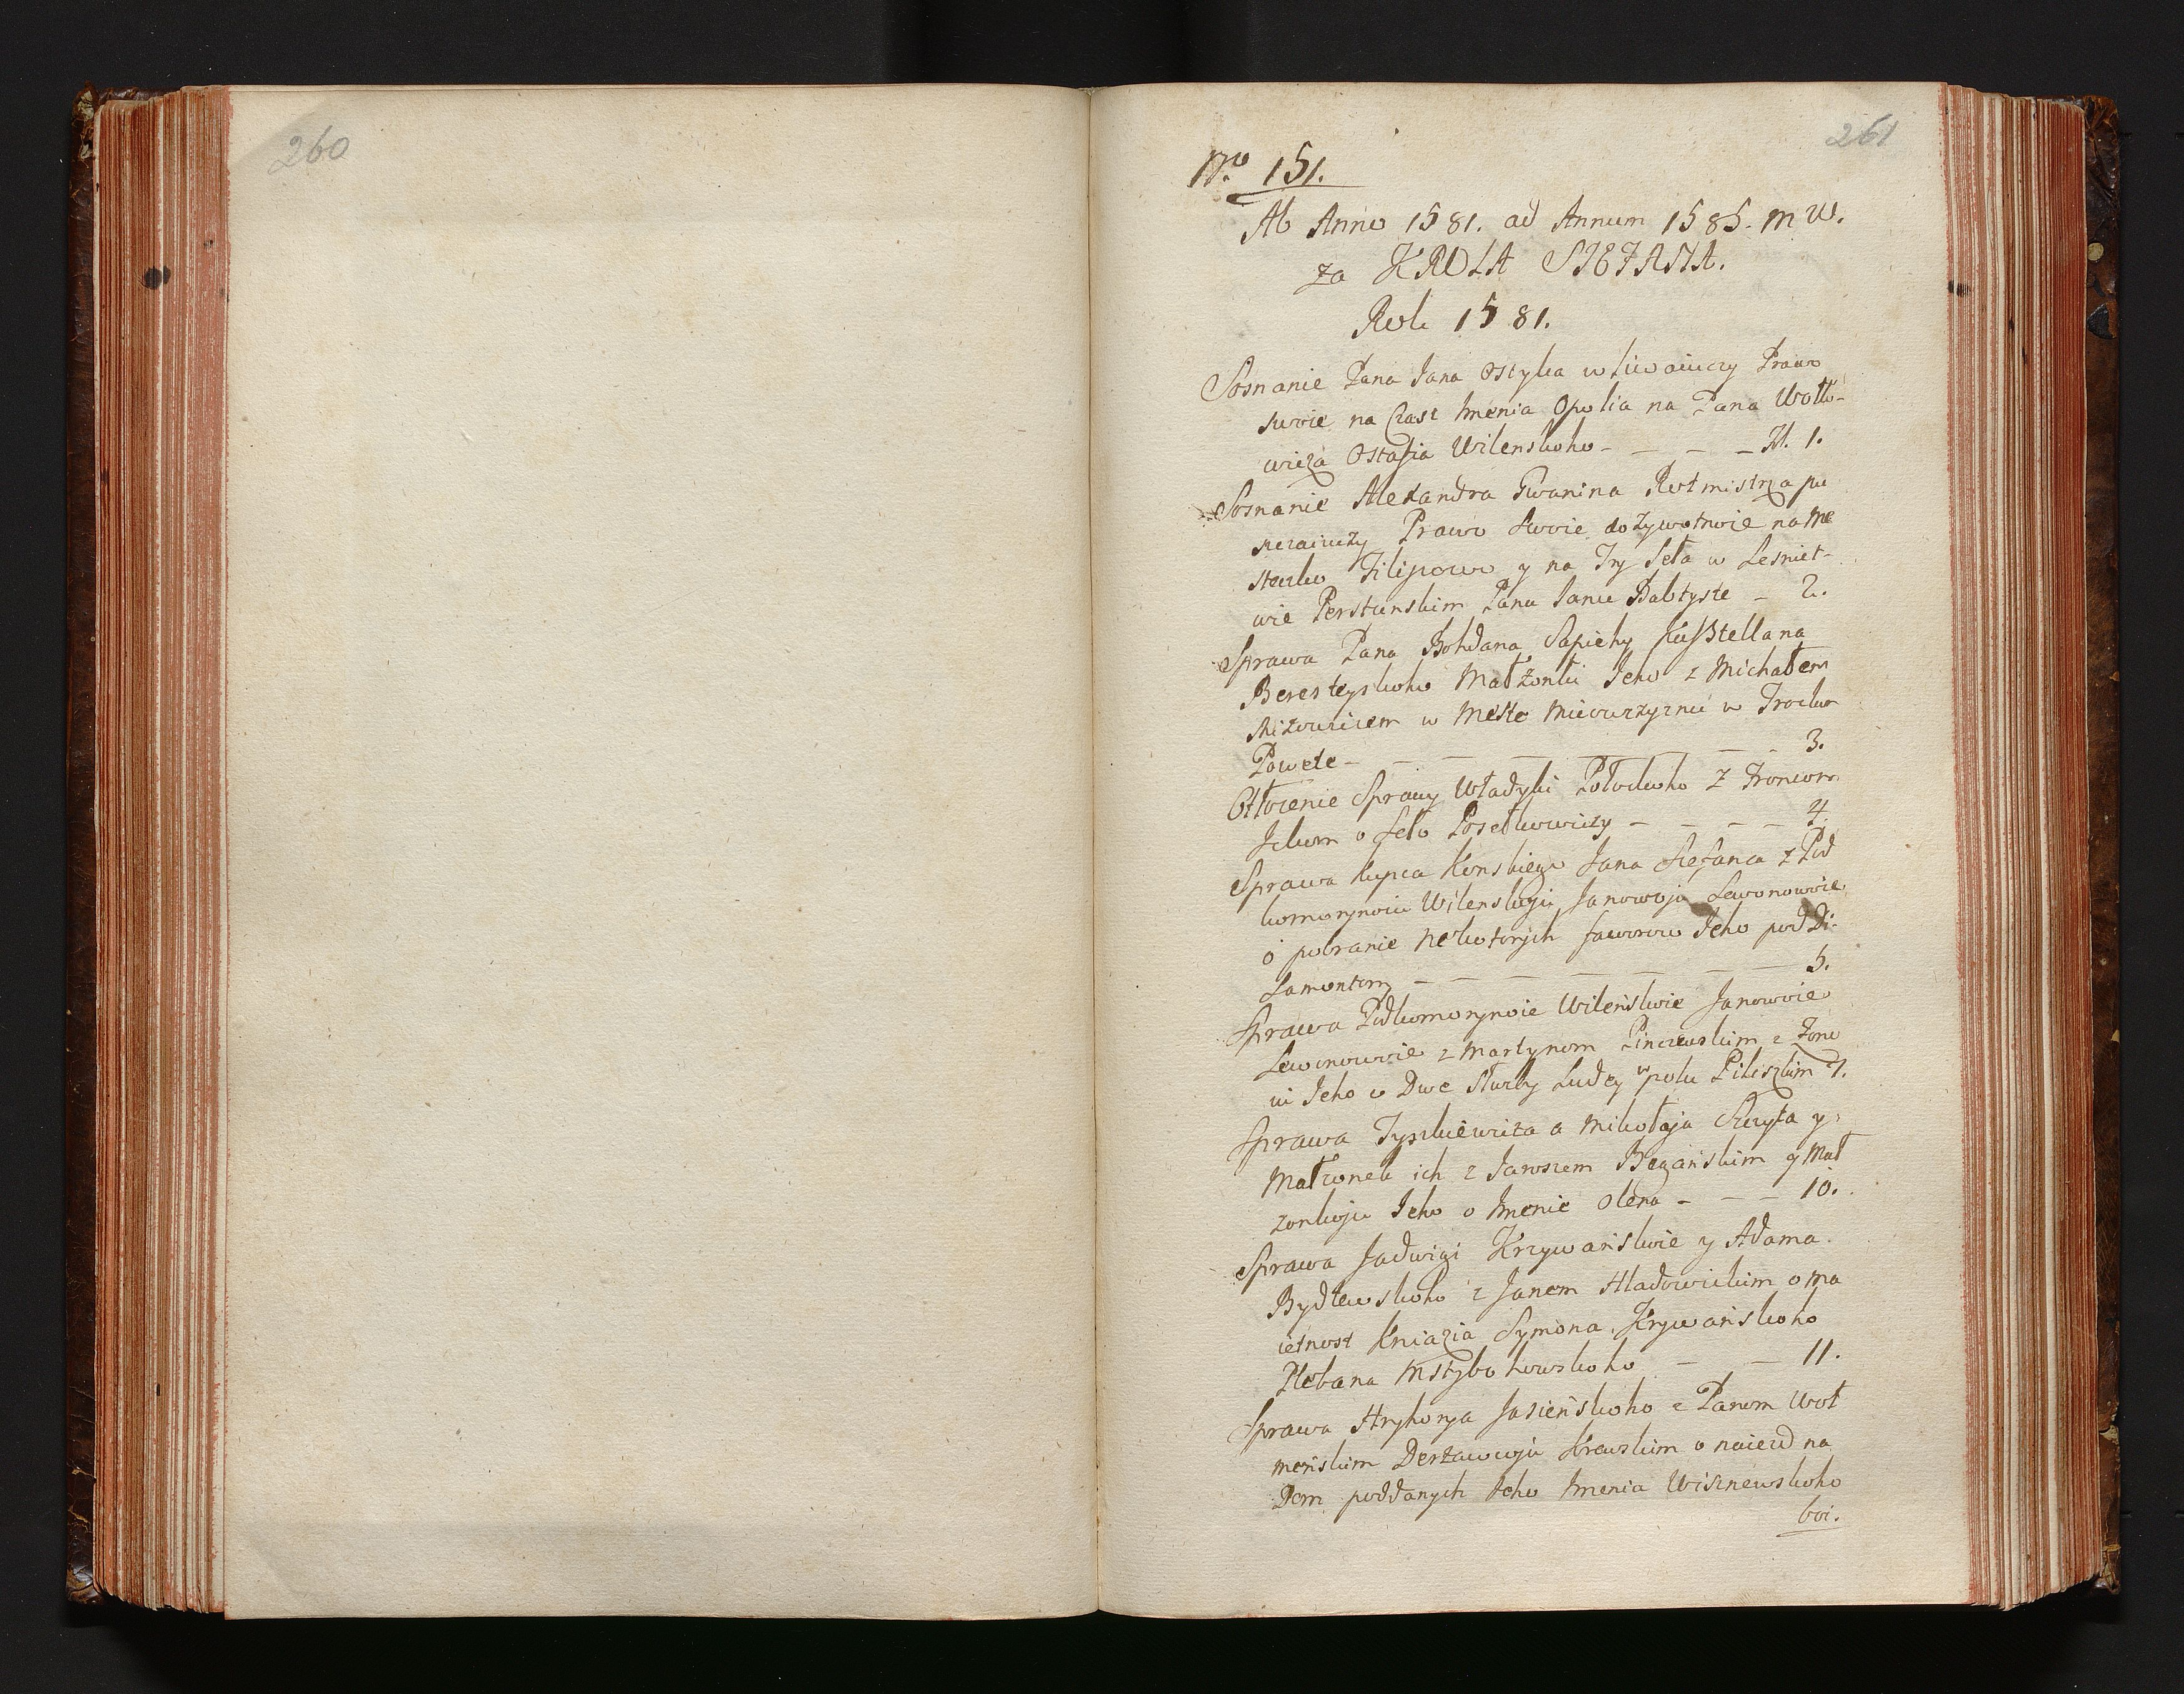 260
261
No 151.
Ab Anno 1581. ad Annum 1585. m w.
za KROLA STEFANA.
Rok 1581.
Sosnanie Pana Jana Ostyka wliwaiuczy Prawo
swoie na Czast Imenia Opolia na Pana Wołło-
wicza Ostafia Wilenskoho - - - - Fl. 1.
Soznanie Alexandra Gwanina Rotmistrza pu
sczaiuczy Prawo Swoie dożywotnoie na Me
steczko Filipowo y na Try Seła w Lesnict-
wie Perstunskim Panu Janu Babtyste - 2.
Sprawa Pana Bohdana Sapiehy Kasstellana
Beresteyskoho Małżonki Jeho z Michałem
w Meste w Trockom
Powete - - - - - - 3.
Otłożenie Sprawy Władyki Połockoho z
o Seło - - - - 4.
Sprawa kupca Konskiego Jana Stefana z Pod
komorynoiu Wilenskoju Janowoju Lewonowoie
o pobranie nekotorych faworow Jeho pod Di-
lamentom - - - - - - 5.
Sprawa Podkomorynoie Wilenskoie Janowoie
Lewonowoie z Martynom Pinczewskim z żono
iu Jeho o Dwe Służby Ludzy w polu Piliszkim 7.
Sprawa Tyszkiewicza a Mikołaja Szczyta y
Małżonek ich z Jaroszem Beganskim y Mał
żonkoju Jeho o Imenie Olena - - - 10.
Sprawa Jadwigi Krzywańskoie y Adama
Bydłewskoho z Janem Hladowickim o ma
ietnost Kniazia Symona Krywańskoho
Plebana Mstybohowskoho - - 11.
Sprawa Hryhorya Jasieńskoho z Panom Woł
meńskim Derżawcoju Krewskim o naiezd na
Dom poddanych Jeho Imenia Wiszniewskoho
boi.